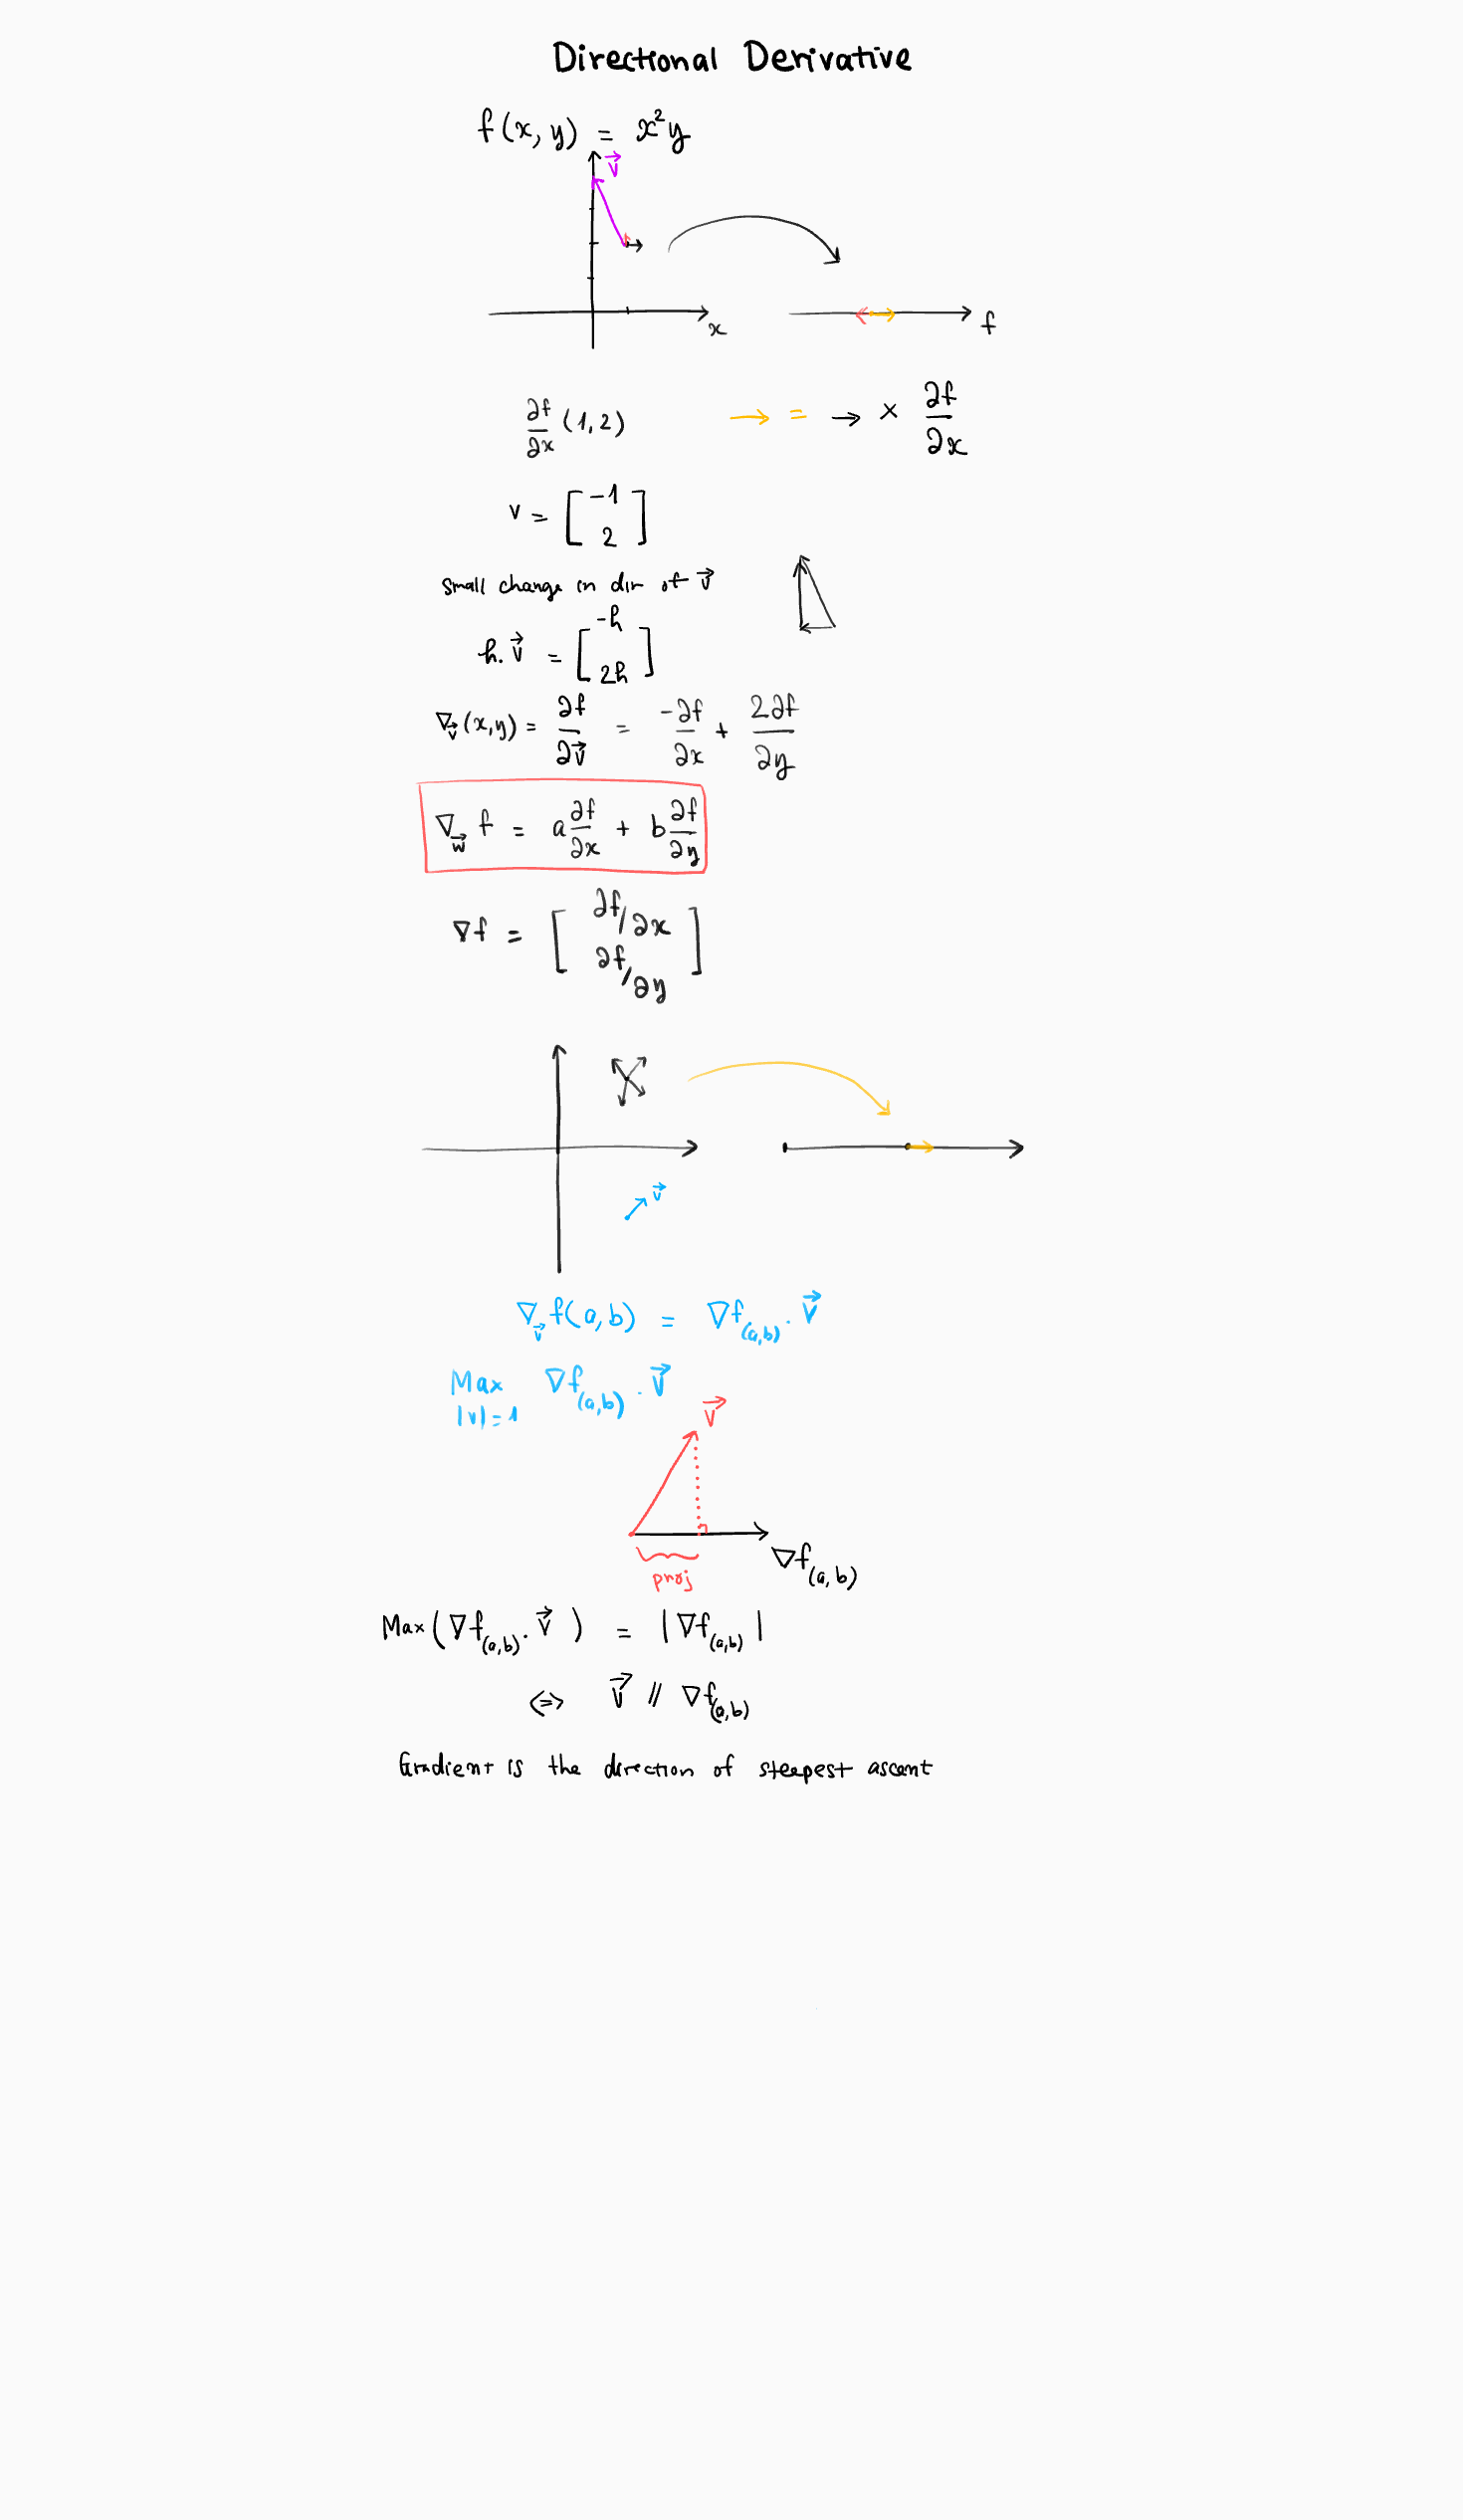 Directional Derivative
f(x, y) = x²y
v⃗
x
f
∂f/∂x (1,2) → = → × ∂f/∂x
v = [-1 2]
small change in dir of v⃗
h. v⃗ = [-h 2h]
∇v⃗ (x,y) = ∂f/∂v⃗ = -∂f/∂x + 2∂f/∂y
∇w⃗ f = a ∂f/∂x + b ∂f/∂y
∇f = [∂f/∂x ∂f/∂y]
v⃗
∇v⃗ f(a,b) = ∇f(a,b) · v⃗
Max ∇f(a,b) · v⃗
|v|=1
v⃗
proj
∇f(a,b)
Max(∇f(a,b) · v⃗) = |∇f(a,b)|
<=> v⃗ // ∇f(a,b)
Gradient is the direction of steepest ascent